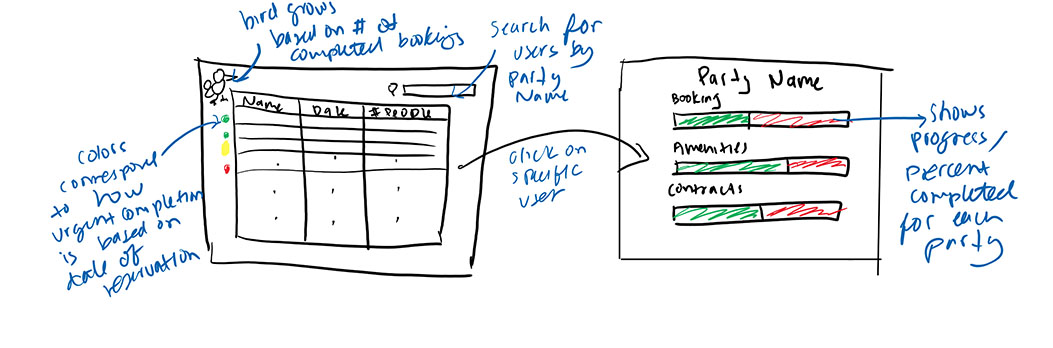 bird grows
based on # of
completed bookings
Search for
users by
party
Name
Name Date # PEOPLE
colors
correspond
to how
urgent completion
is based on
date of
reservation
click on
specific
user
Party Name
Booking
Amenities
Contracts
Shows
progress/
percent
completed
for each
party